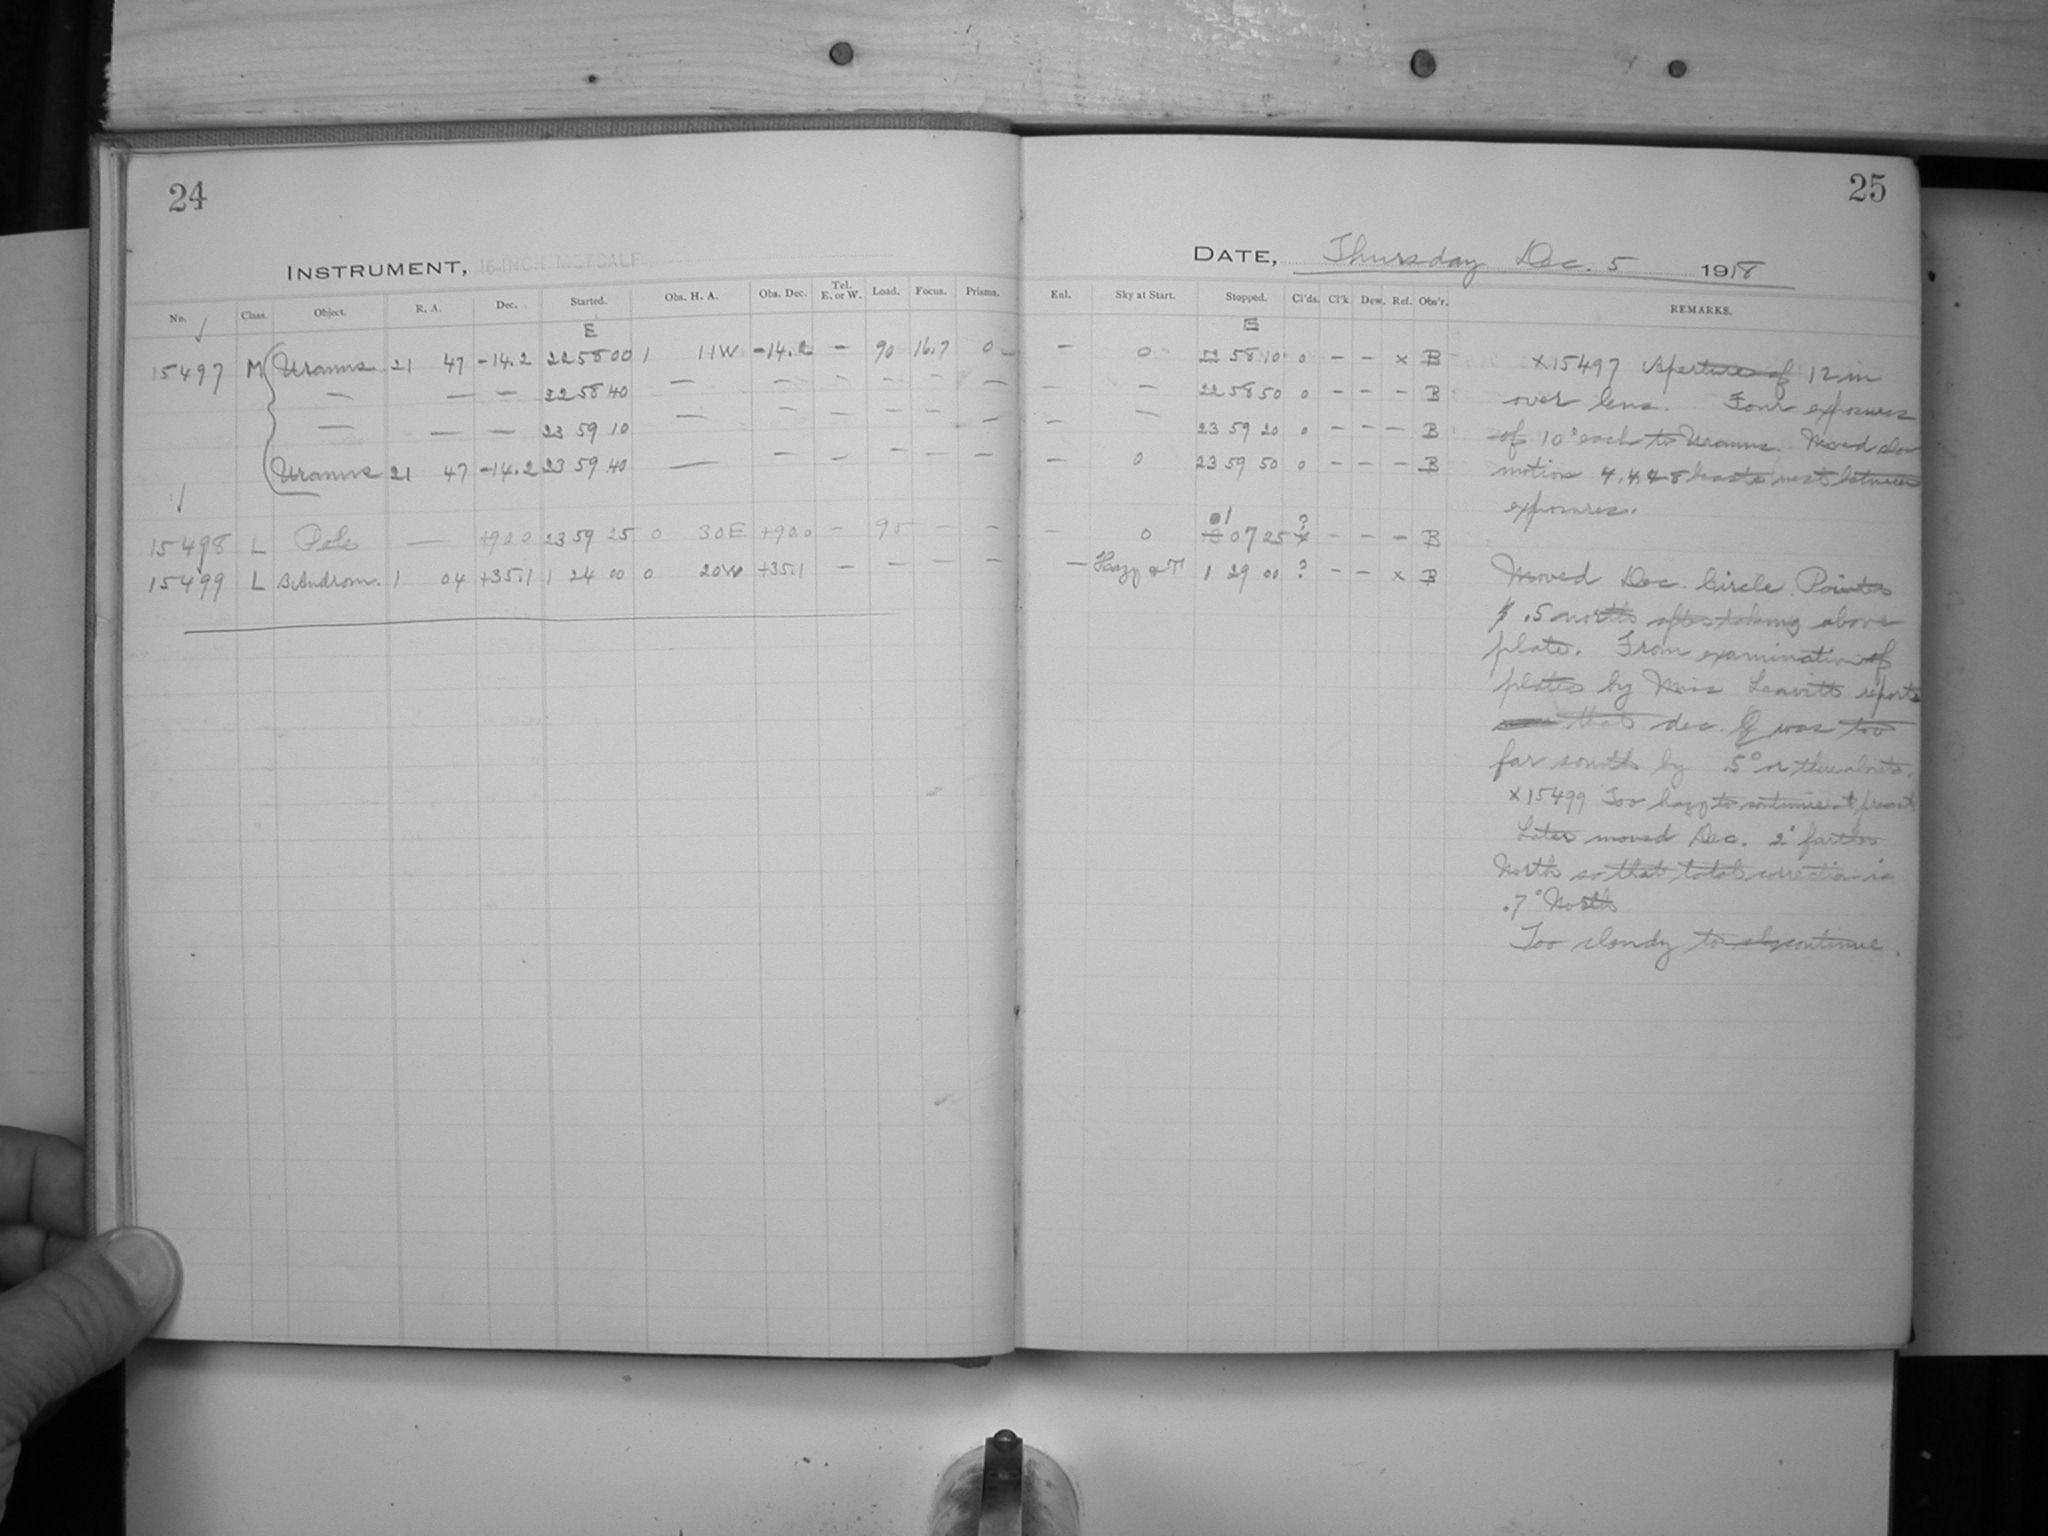 24
INSTRUMENT, 16-INCH METCALF
No. Class. Object. R. A. Dec. Started. Obs. H. A. Obs. Dec. Tel. E. or W. Load. Focus. Prisms.
E
15497 M Uranus 21 47 -14.2 22 58 00 1 11W -14.2 - 90 16.7 0
— — — 22 58 40 — — — — — —
— — — 23 59 10 — — — — — —
Uranus 21 47 -14.2 23 59 40 — — — — — —
15498 L Pole — +90.0 23 59 25 0 30E +90.0 - 95 - -
15499 L B. Androm. 1 04 +35.1 1 24 00 0 20W +35.1 - - - - -
25
DATE, Thursday Dec. 5 1918
Enl. Sky at Start. Stopped. Cl'ds. Cl'k. Dew. Ref. Obs'r. REMARKS.
E
- 0 22 58 10 0 - - x B
- - 22 58 50 0 - - - B
- - 23 59 20 0 - - - B
- 0 23 59 50 0 - - - B
- 0 1 07 25 ? - - - B
- Hazy 1 29 00 ? - - x B
x15497 Aperture of 12 in
over lens. Four exposures
of 10s each to Uranus. Moved slow
motion 4, 4, 4 8 beats west between
exposures.
Moved Dec. Circle Points
.5 north after taking above
plate. From examination of
plates by Miss Leavitt reports
that dec. was too
far south by .5° or thereabouts.
x15499 Too hazy to continue at present
Later moved Dec. 2° farther
North so that total correction is
.7° North
Too cloudy to continue.